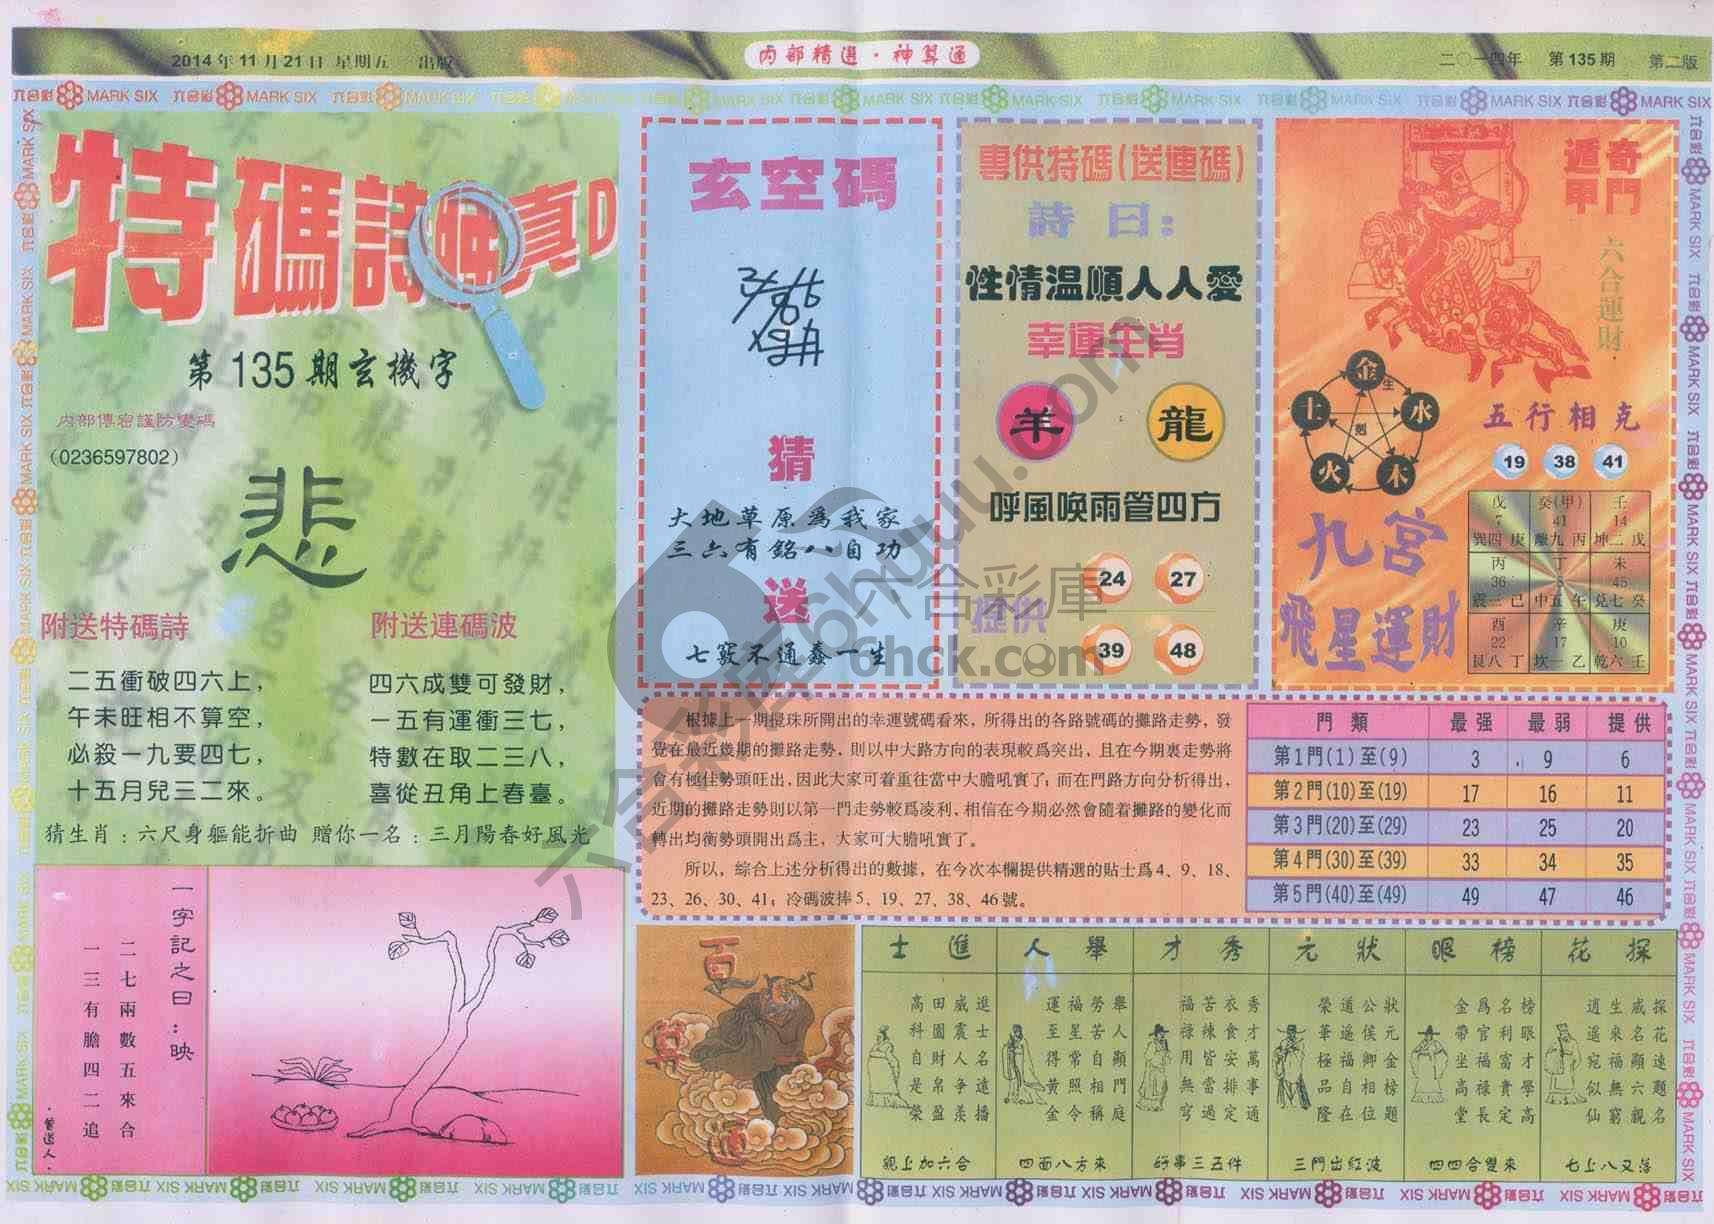 2014年11月21日 星期五 出版
内部精選·神算通
二〇一四年 第135期 第二版
六合彩 MARK SIX
特碼詩
真D
第135期玄機字
内部傳密謹防變碼
(0236597802)
悲
附送特碼詩
二五衝破四六上,
午未旺相不算空,
必殺一九要四七,
十五月兒三二來。
附送連碼波
四六成雙可發財,
一五有運衝三七,
特數在取二三八,
喜從丑角上春臺。
猜生肖:六尺身軀能折曲 贈你一名:三月陽春好風光
一字記之曰:映
二七兩數五來合
一三有膽四二追
·曾道人·
玄空碼
猜
大地草原爲我家
三六有銘八自功
送
七竅不通蠢一生
專供特碼(送連碼)
詩曰:
性情温順人人愛
幸運生肖
羊 龍
呼風喚雨管四方
提供
24 27
39 48
奇門遁甲
六合運財
金 生 水 木 火 土 剋
五行相克
19 38 41
九宮
飛星運財
戊 癸(甲) 壬
7 41 14
巽四 庚 離九 丙 坤二 戊
丙 丁 未
36 8 45
震三 己 中五 午 兌七 癸
酉 辛 庚
22 17 10
艮八 丁 坎一 乙 乾六 壬
根據上一期攪珠所開出的幸運號碼看來,所得出的各路號碼的攤路走勢,發
覺在最近幾期的攤路走勢,則以中大路方向的表現較爲突出,且在今期裏走勢將
會有極佳勢頭旺出,因此大家可着重往當中大膽吼實了;而在門路方向分析得出,
近期的攤路走勢則以第一門走勢較爲凌利,相信在今期必然會隨着攤路的變化而
轉出均衡勢頭開出爲主,大家可大膽吼實了。
所以,綜合上述分析得出的數據,在今次本欄提供精選的貼士爲4、9、18、
23、26、30、41;冷碼波捧5、19、27、38、46號。
門類 最强 最弱 提供
第1門(1)至(9) 3 9 6
第2門(10)至(19) 17 16 11
第3門(20)至(29) 23 25 20
第4門(30)至(39) 33 34 35
第5門(40)至(49) 49 47 46
進士
進士名遠播
威震人爭羨
田園財帛盈
高科自是榮
親上加六合
舉人
舉人顯門庭
勞苦自相稱
福星常照令
運至得黄金
四面八方來
秀才
秀才萬事通
衣食安排定
苦辣皆當過
福祿用無窮
好事三五件
狀元
狀元金榜題
公侯卿相位
道遥福自在
榮華極品隆
三門出紅波
榜眼
榜眼才學高
名利富貴定
爲官福祿長
金帶坐高堂
四四合雙來
探花
探花遠題名
威名顯六親
生來福無窮
逍遥宛似仙
七上八又落
六合彩庫
6hck.com